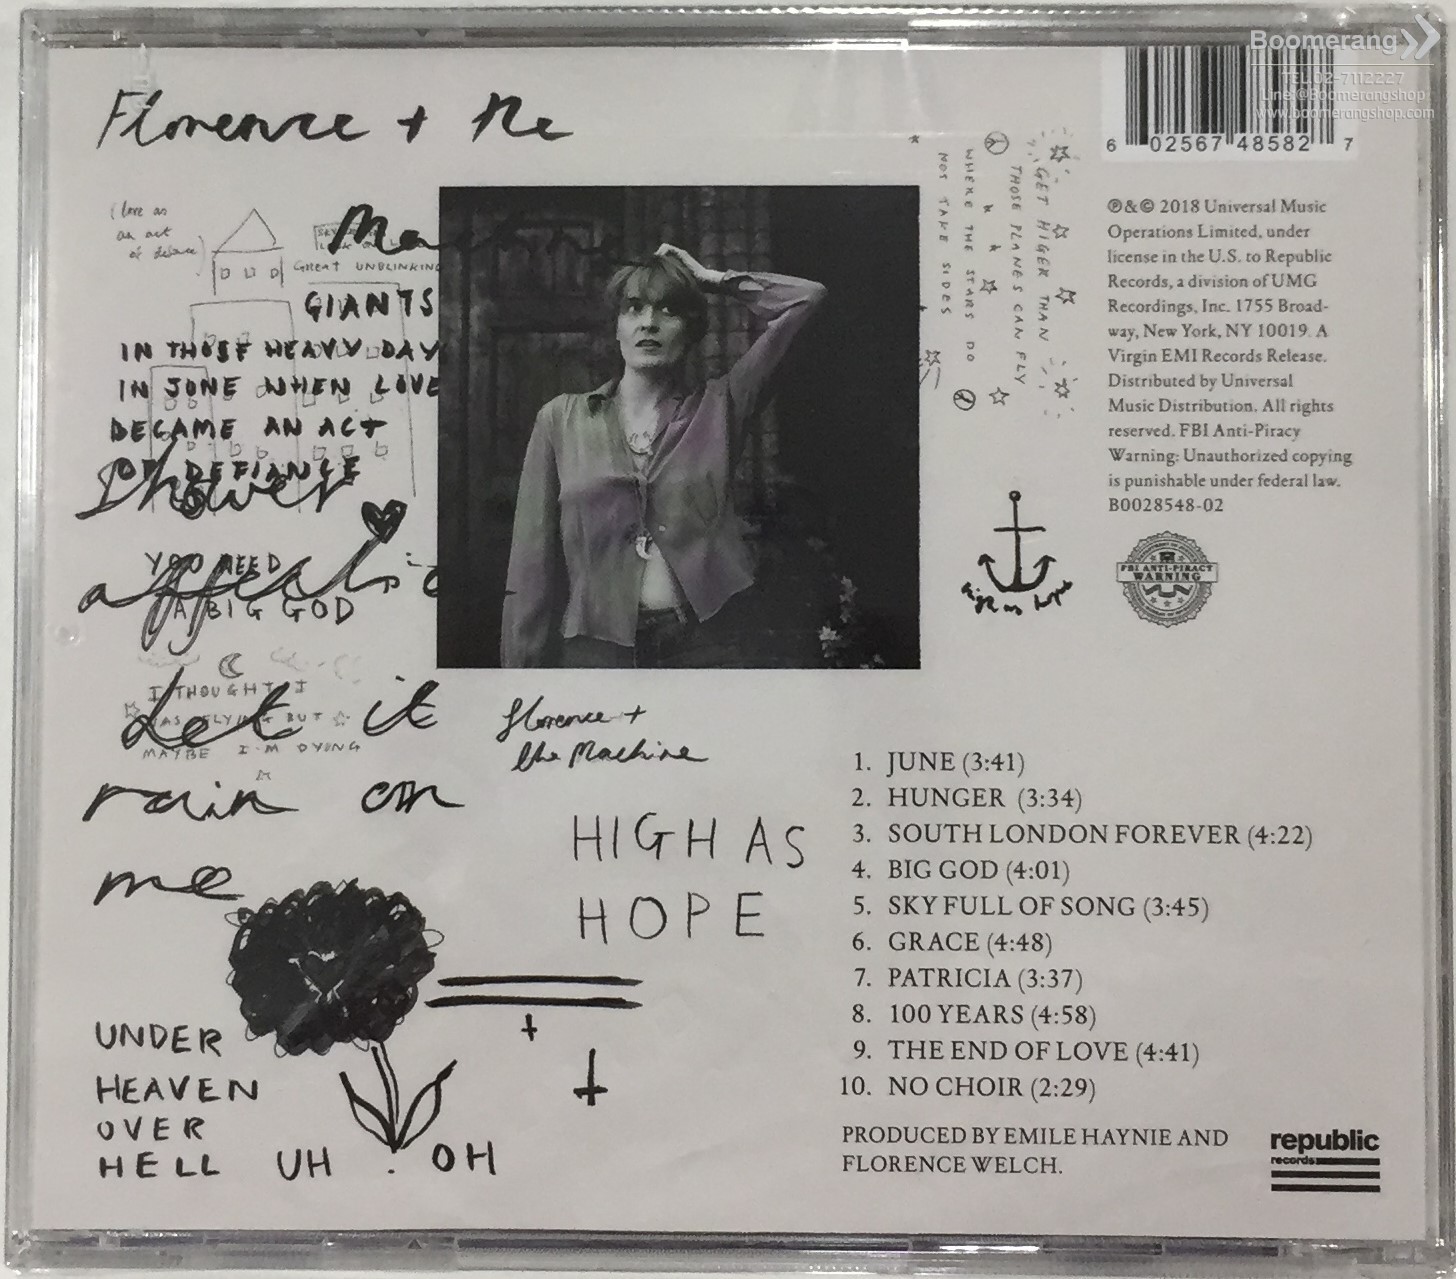 Boomerang
TEL.02-7112227
Line:@Boomerangshop
www.boomerangshop.com
6 02567 48582 7
Florence + the
Machine
(love as
an act
of defiance)
GREAT UNBLINKING
GIANTS
IN THOSE HEAVY DAY
IN JUNE WHEN LOVE
BECAME AN ACT
OF DEFIANCE
Shower
YOU NEED
affectio
A BIG GOD
I THOUGHT I
WAS FLYING BUT
MAYBE I'M DYING
Let it
rain on
me
UNDER
HEAVEN
OVER
HELL UH . OH
GET HIGER THAN
THOSE PLANES CAN FLY
WHERE THE STARS DO
NOT TAKE SIDES
℗&© 2018 Universal Music
Operations Limited, under
license in the U.S. to Republic
Records, a division of UMG
Recordings, Inc. 1755 Broad-
way, New York, NY 10019. A
Virgin EMI Records Release.
Distributed by Universal
Music Distribution. All rights
reserved. FBI Anti-Piracy
Warning: Unauthorized copying
is punishable under federal law.
B0028548-02
high as hope
FBI ANTI-PIRACY
WARNING
florence +
the Machine
HIGH AS
HOPE
1. JUNE (3:41)
2. HUNGER (3:34)
3. SOUTH LONDON FOREVER (4:22)
4. BIG GOD (4:01)
5. SKY FULL OF SONG (3:45)
6. GRACE (4:48)
7. PATRICIA (3:37)
8. 100 YEARS (4:58)
9. THE END OF LOVE (4:41)
10. NO CHOIR (2:29)
PRODUCED BY EMILE HAYNIE AND
FLORENCE WELCH.
republic
records